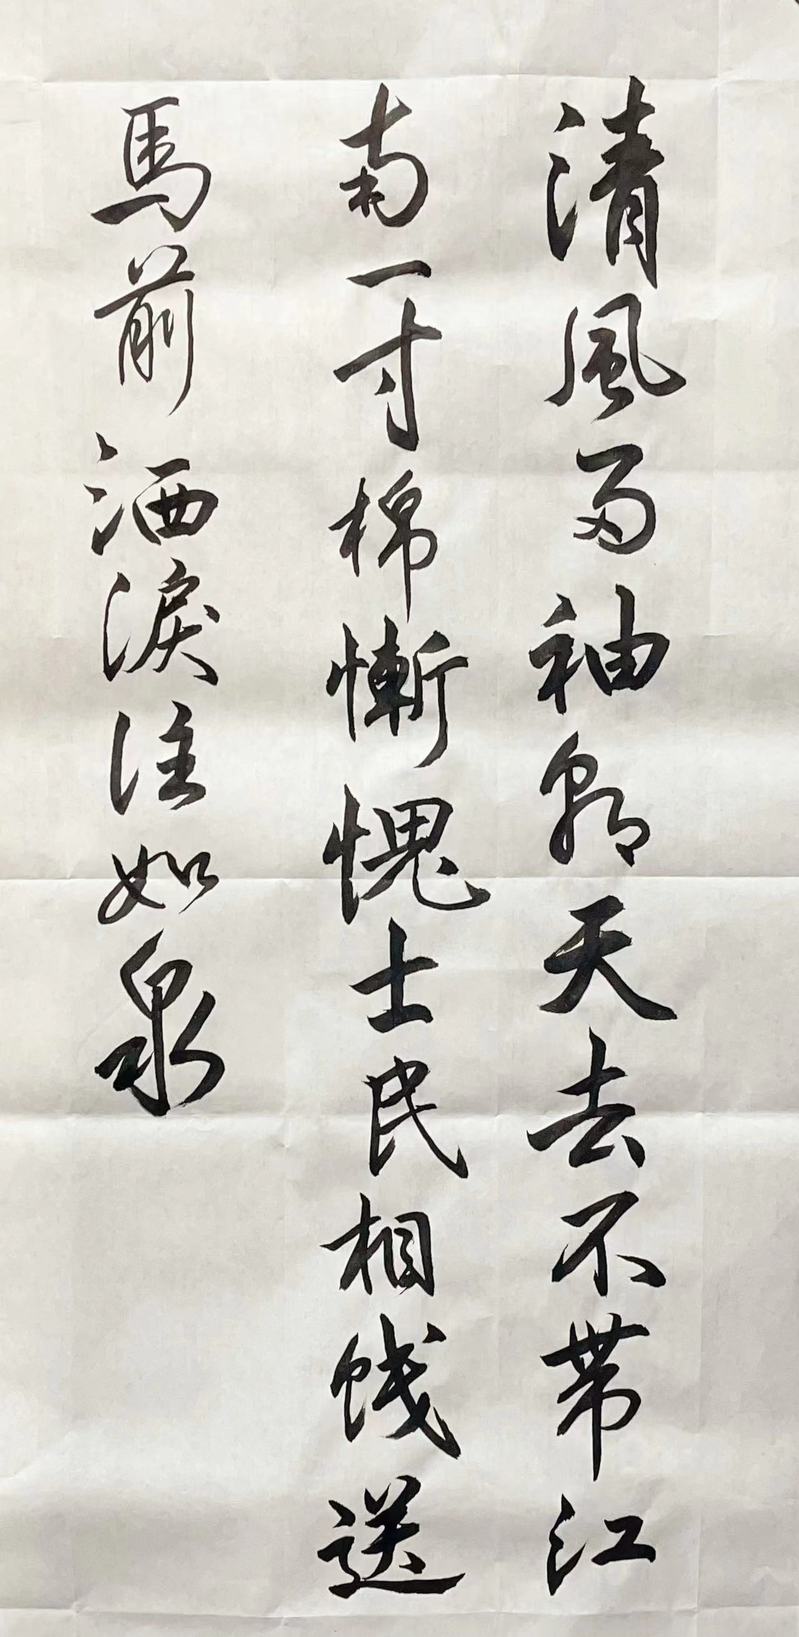 清風兩袖朝天去不帶江
南一寸棉慚愧士民相餞送
馬前洒淚注如泉